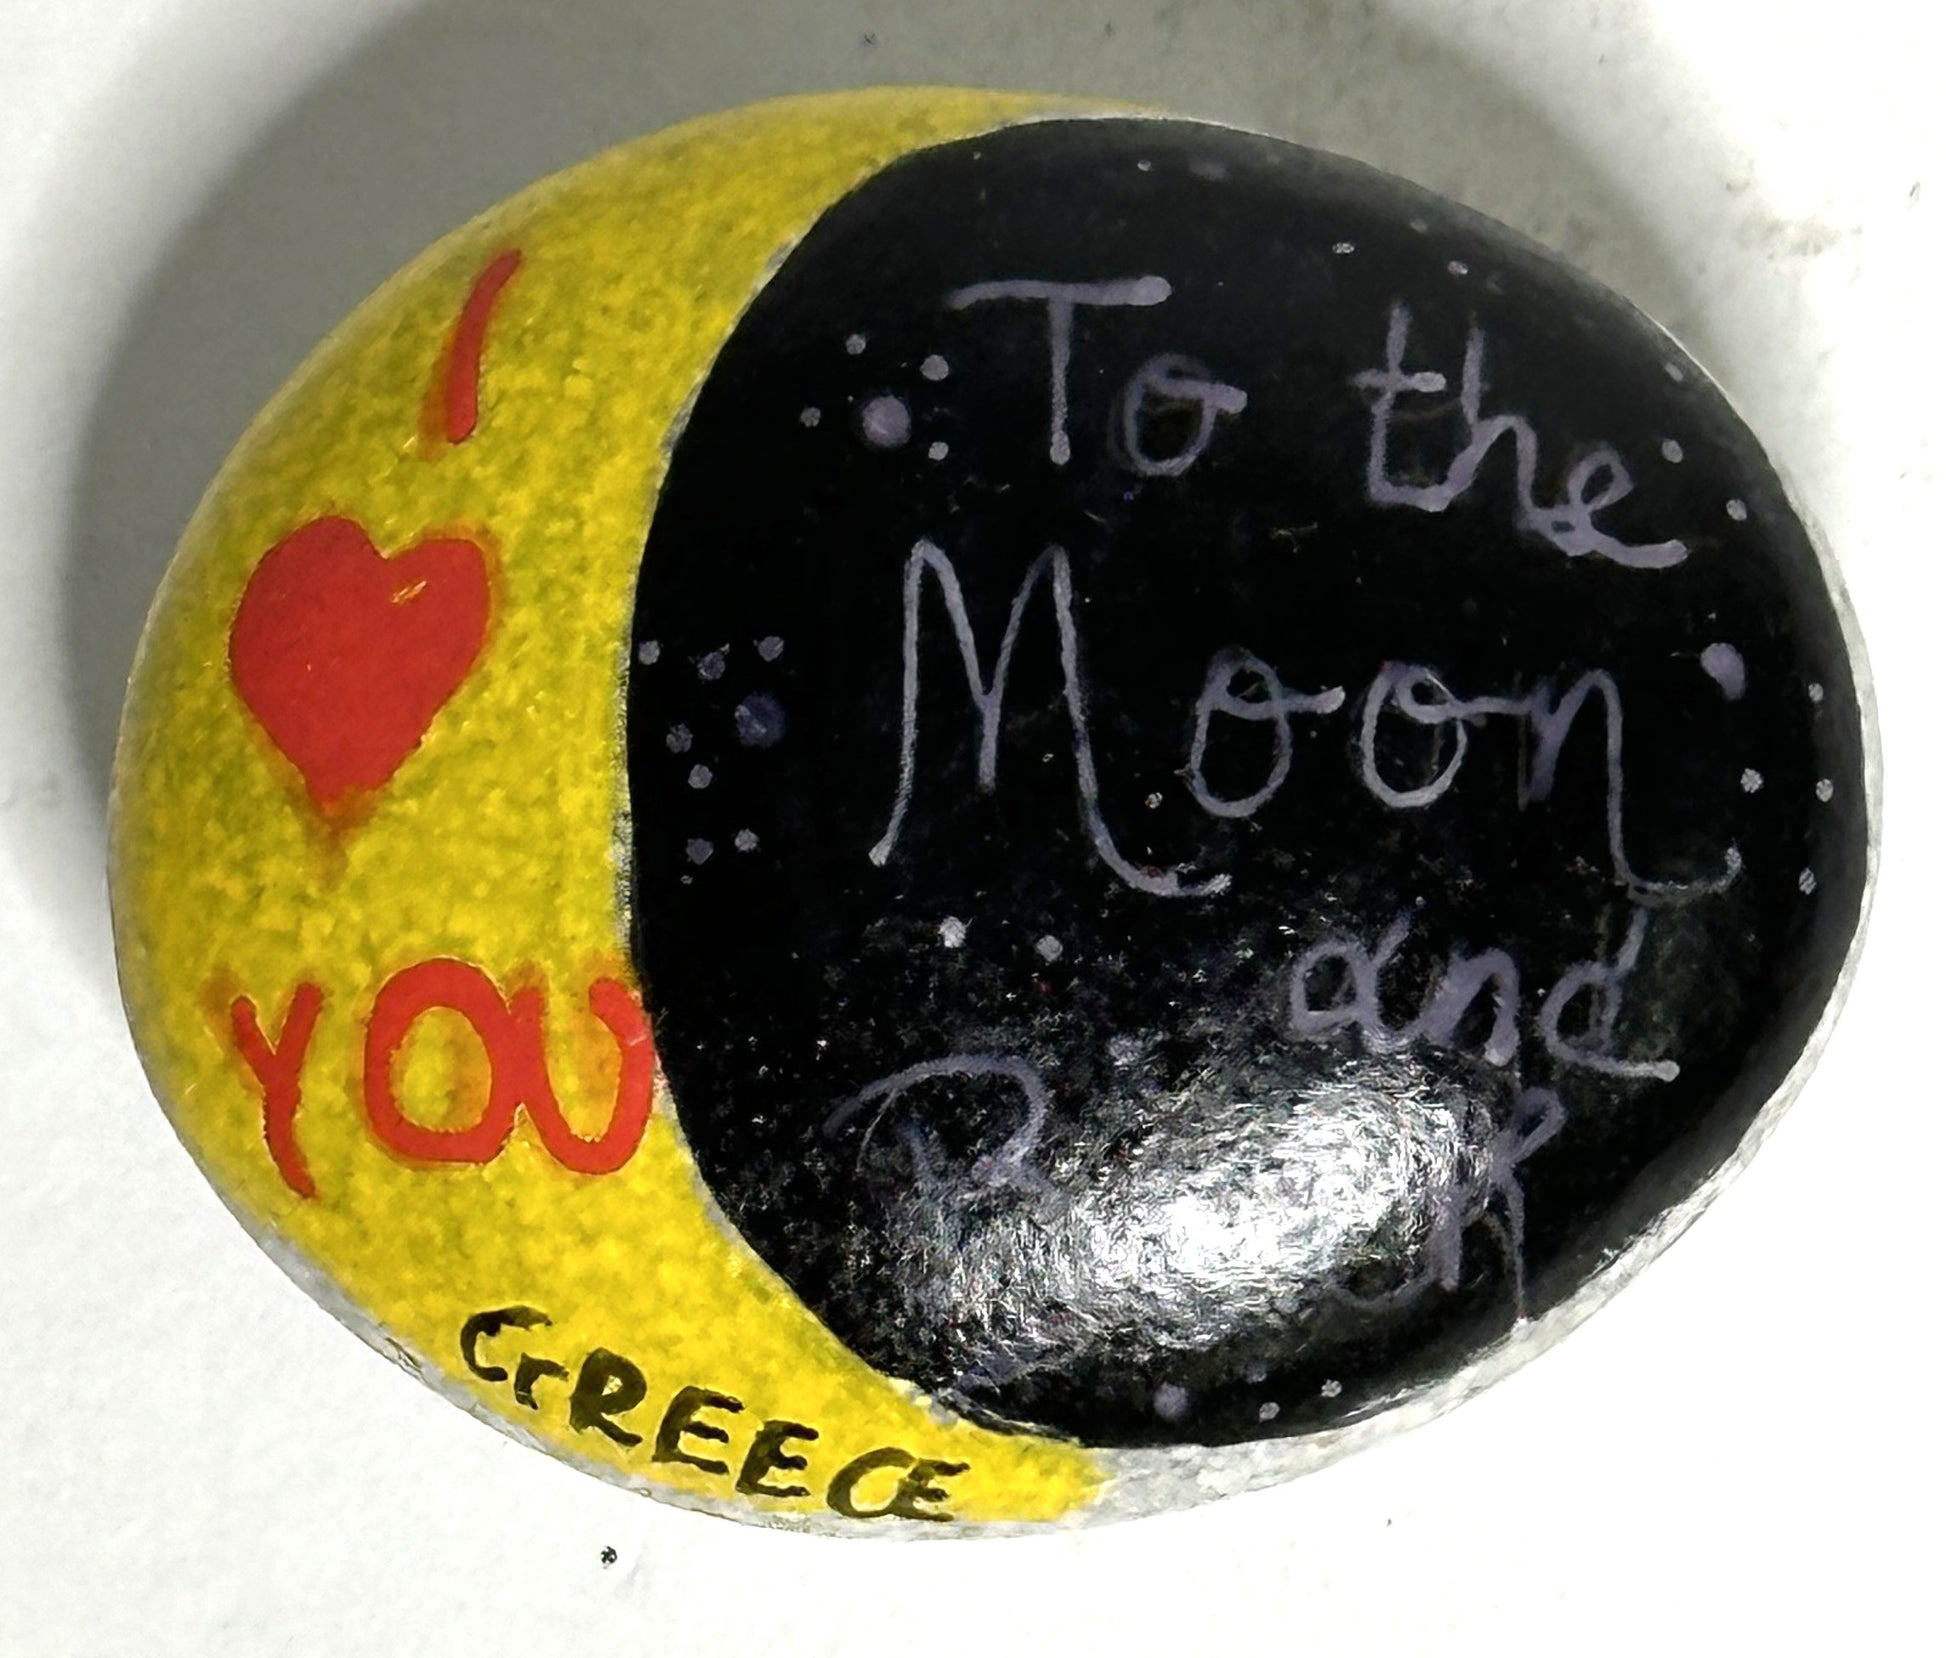 I
YOU
GREECE
To the
Moon
and